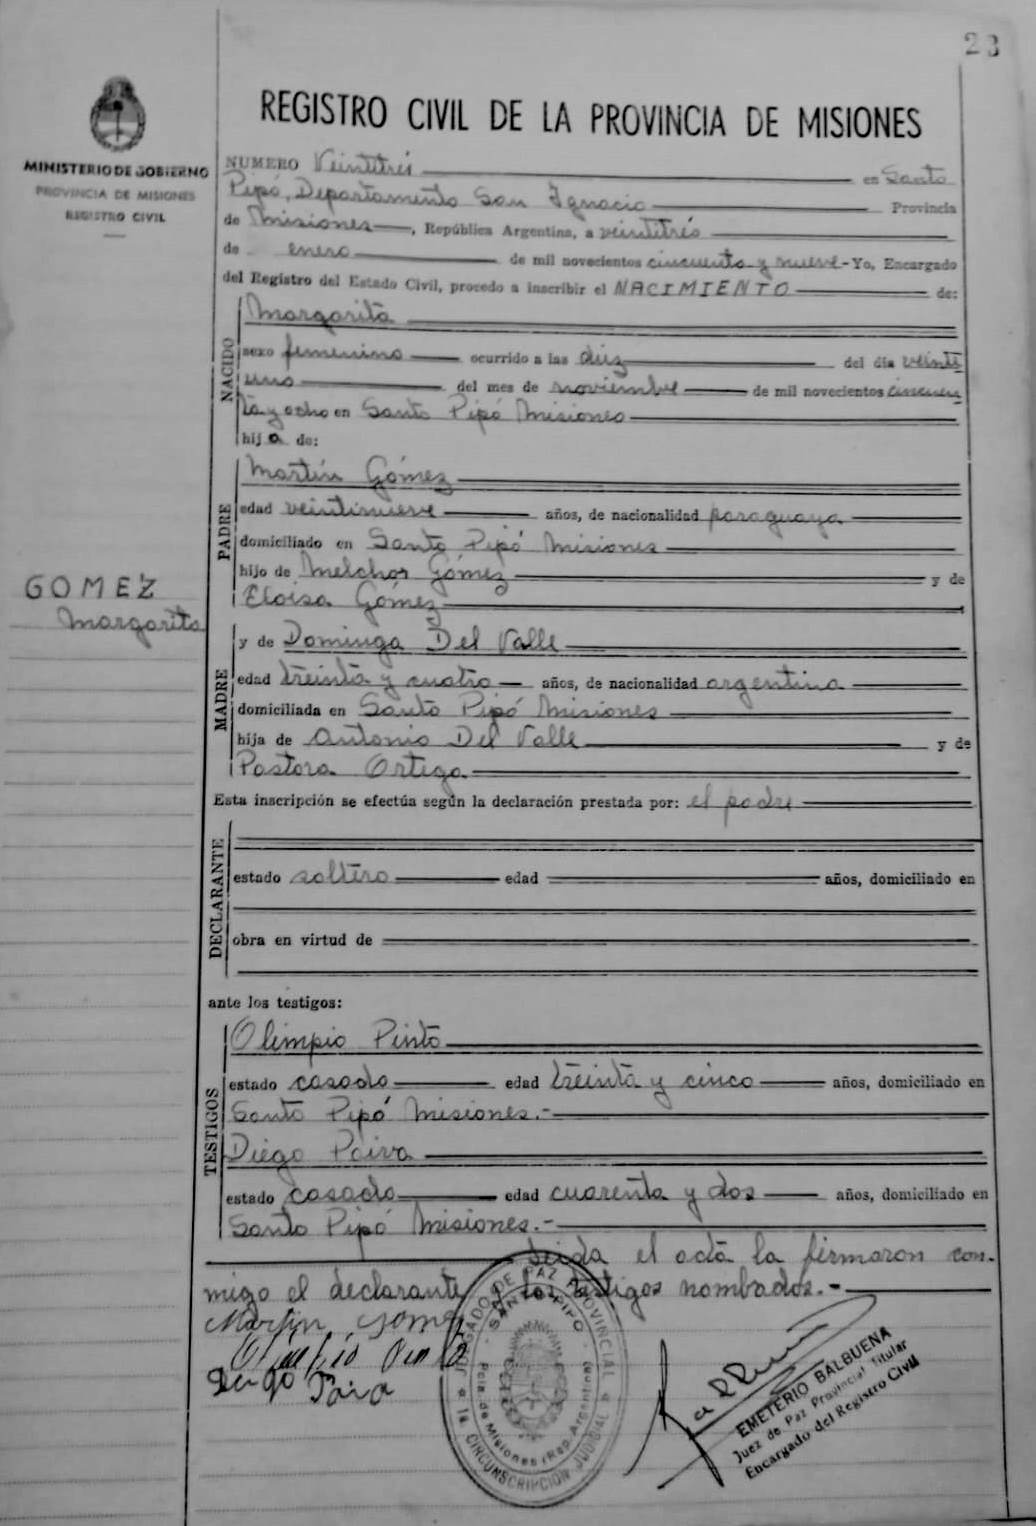 23
MINISTERIO DE GOBIERNO
PROVINCIA DE MISIONES
REGISTRO CIVIL
REGISTRO CIVIL DE LA PROVINCIA DE MISIONES
NUMERO Veintitrés en Santo
Pipó, Departamento San Ignacio Provincia
de Misiones, República Argentina, a veintitrés
de enero de mil novecientos cincuenta y nueve - Yo, Encargado
del Registro del Estado Civil, procedo a inscribir el NACIMIENTO de:
NACIDO
Margarita
sexo femenino ocurrido a las diez del día veinti
uno del mes de noviembre de mil novecientos cincuen
ta y ocho en Santo Pipó Misiones
hija de:
PADRE
Martín Gómez
edad veintinueve años, de nacionalidad paraguaya
domiciliado en Santo Pipó Misiones
hijo de Melchor Gómez y de
Eloisa Gómez
GOMEZ
Margarita
MADRE
y de Dominga Del Valle
edad treinta y cuatro años, de nacionalidad argentina
domiciliada en Santo Pipó Misiones
hija de Antonio Del Valle y de
Pastora Ortega
Esta inscripción se efectúa según la declaración prestada por: el padre
DECLARANTE
estado soltero edad años, domiciliado en
obra en virtud de
ante los testigos:
TESTIGOS
Olimpio Pinto
estado casado edad treinta y cinco años, domiciliado en
Santo Pipó Misiones.-
Diego Paiva
estado casado edad cuarenta y dos años, domiciliado en
Santo Pipó Misiones.-
Leida el acta la firmaron con-
migo el declarante y los testigos nombados.-
Martin Gomez
Olimpio Pinto
Diego Paiva
JUZGADO DE PAZ PROVINCIAL
SANTO PIPO
Pcia. de Misiones (Rep. Argentina)
1a. CIRCUNSCRIPCION JUDICIAL
EMETERIO BALBUENA
Juez de Paz Provincial Titular
Encargado del Registro Civil